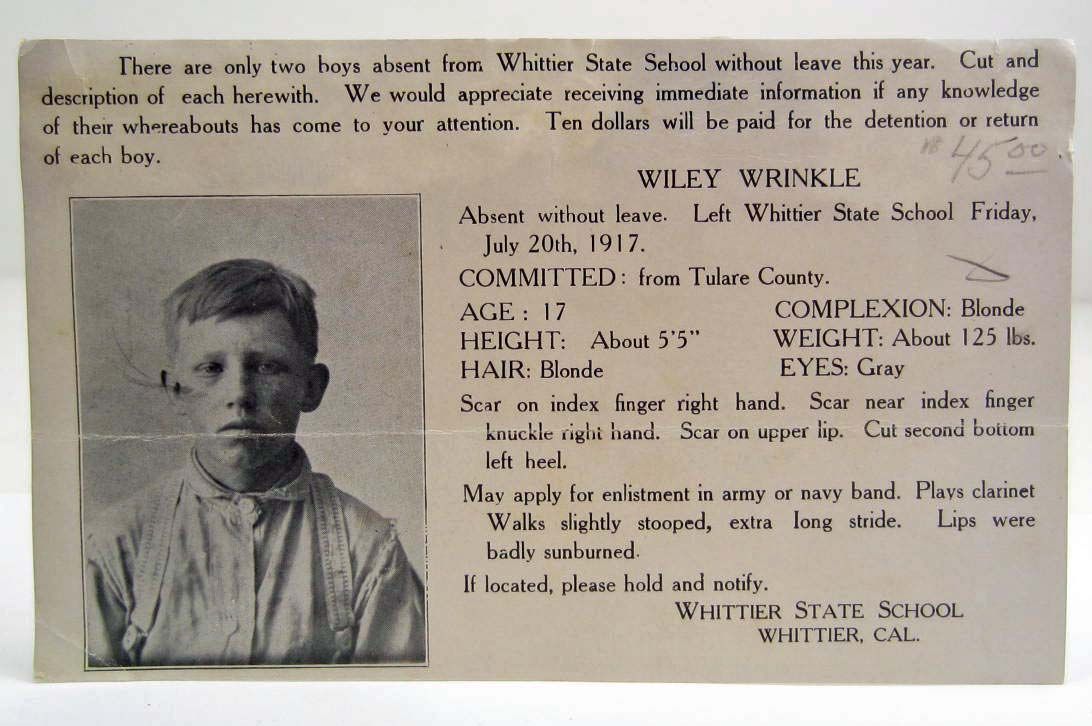 There are only two boys absent from Whittier State School without leave this year. Cut and
description of each herewith. We would appreciate receiving immediate information if any knowledge
of their whereabouts has come to your attention. Ten dollars will be paid for the detention or return
of each boy.
45 00
WILEY WRINKLE
Absent without leave. Left Whittier State School Friday,
July 20th, 1917.
COMMITTED: from Tulare County.
AGE: 17 COMPLEXION: Blonde
HEIGHT: About 5'5" WEIGHT: About 125 lbs.
HAIR: Blonde EYES: Gray
Scar on index finger right hand. Scar near index finger
knuckle right hand. Scar on upper lip. Cut second bottom
left heel.
May apply for enlistment in army or navy band. Plays clarinet
Walks slightly stooped, extra long stride. Lips were
badly sunburned.
If located, please hold and notify.
WHITTIER STATE SCHOOL
WHITTIER, CAL.